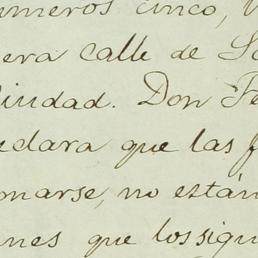 umeros cinco,
era calle de
iudad. Don Fe
clara que las
marse, no están
nes que los sigu